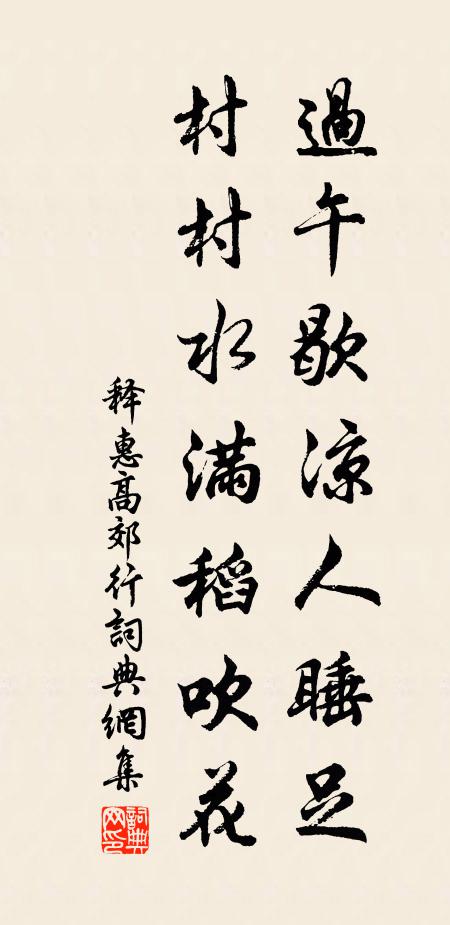 過午歇涼人睡足
村村水滿稻吹花
释惠高郊行詞典網集
詞典网印